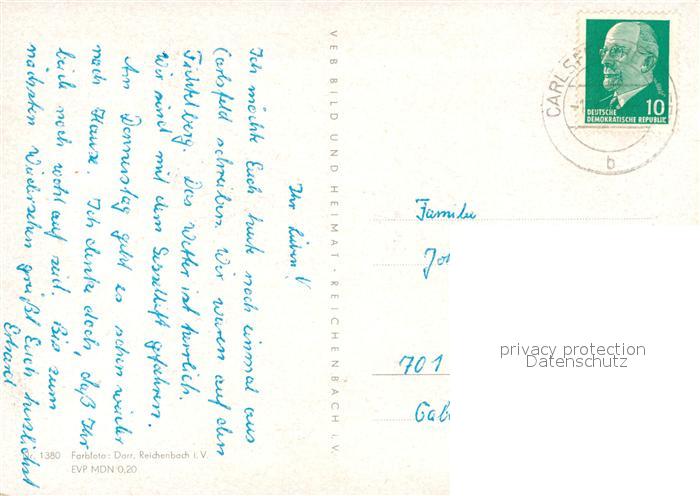 Ihr Lieben!
Ich möchte Euch heute noch einmal aus
Carlsfeld schreiben. Wir waren auf dem
Fichtelberg. Das Wetter ist herrlich.
Wir sind mit dem Sessellift gefahren.
Am Donnerstag geht es schon wieder
nach Hause. Ich denke doch, daß Ihr
beide noch wohl auf seid. Bis zum
nächsten Wiedersehen grüßt Euch herzlichst
Erhard
VEB BILD UND HEIMAT · REICHENBACH i. V.
Nr. 1380 Farbfoto: Darr, Reichenbach i. V.
EVP MDN 0,20
CARLSF
b
DEUTSCHE
DEMOKRATISCHE REPUBLIK
10
Familie
701
privacy protection
Datenschutz